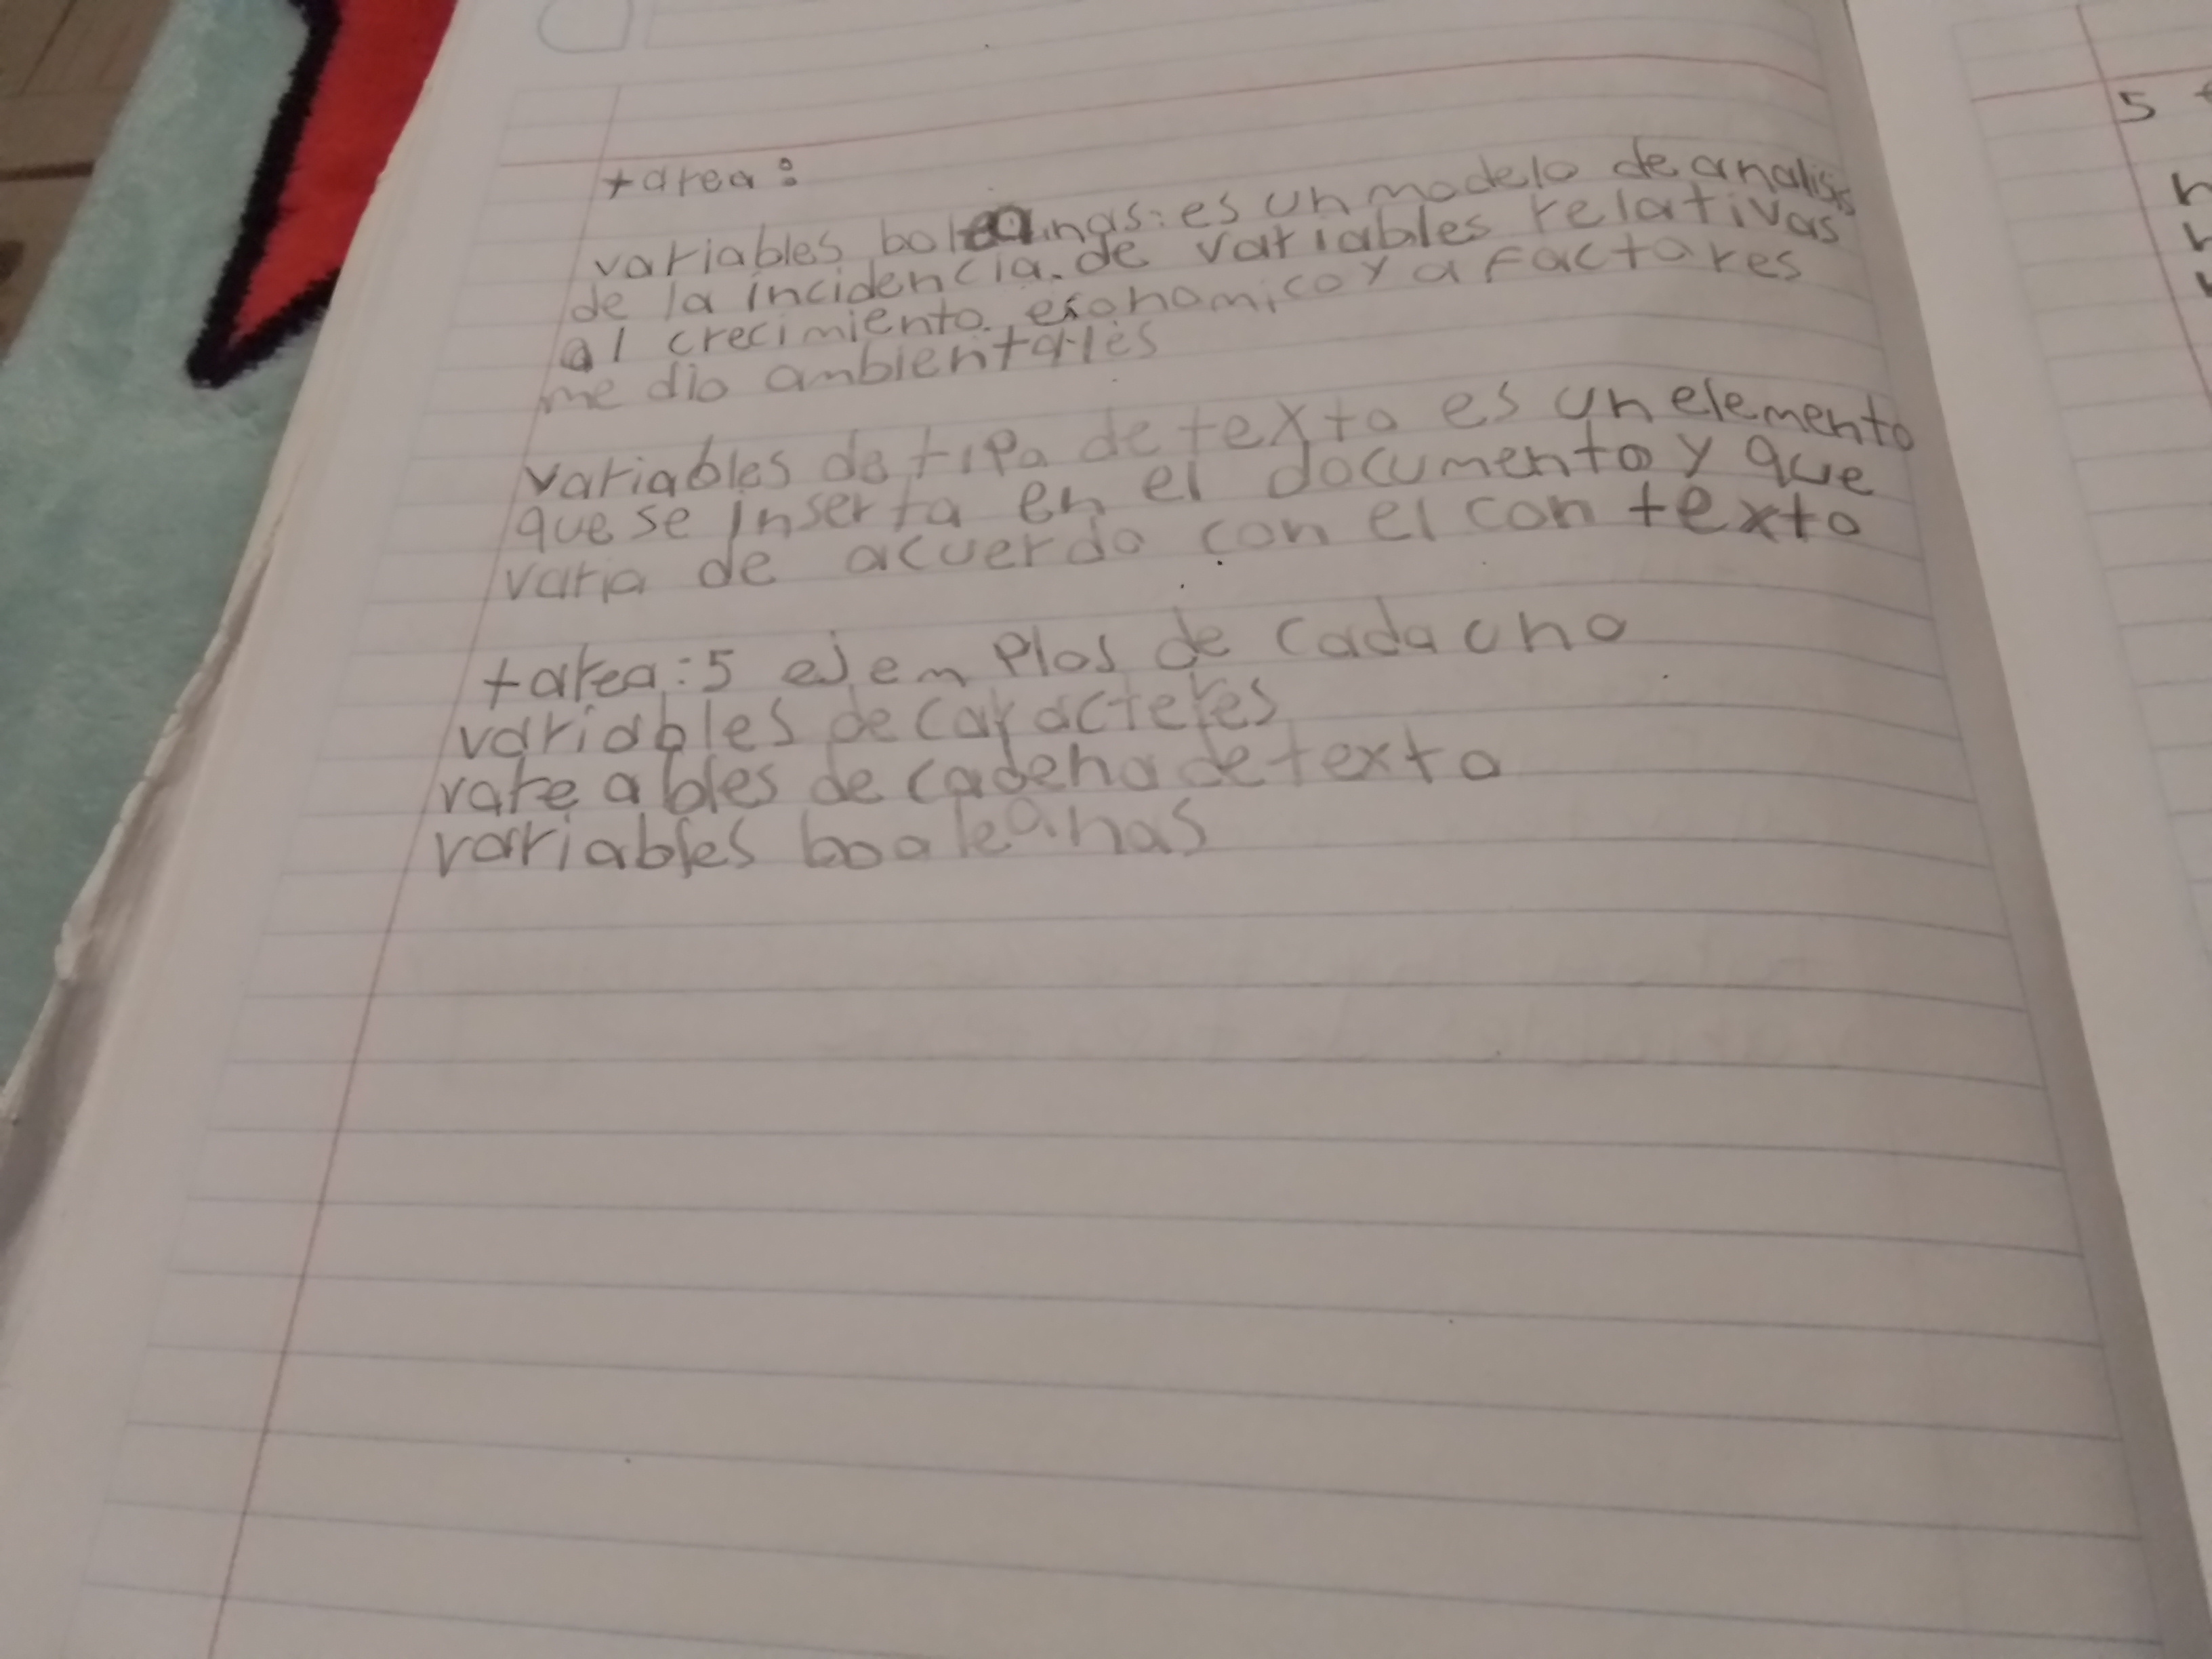 tarea:
variables boleanas: es un modelo de analisis
de la incidencia de variables relativas
al crecimiento economico y a factores
medio ambientales
variables de tipo de texto es un elemento
que se inserta en el documento y que
varia de acuerdo con el contexto
tarea: 5 ejemplos de cada uno
variables de caracteres
vareables de cadena de texto
variables booleanas
5